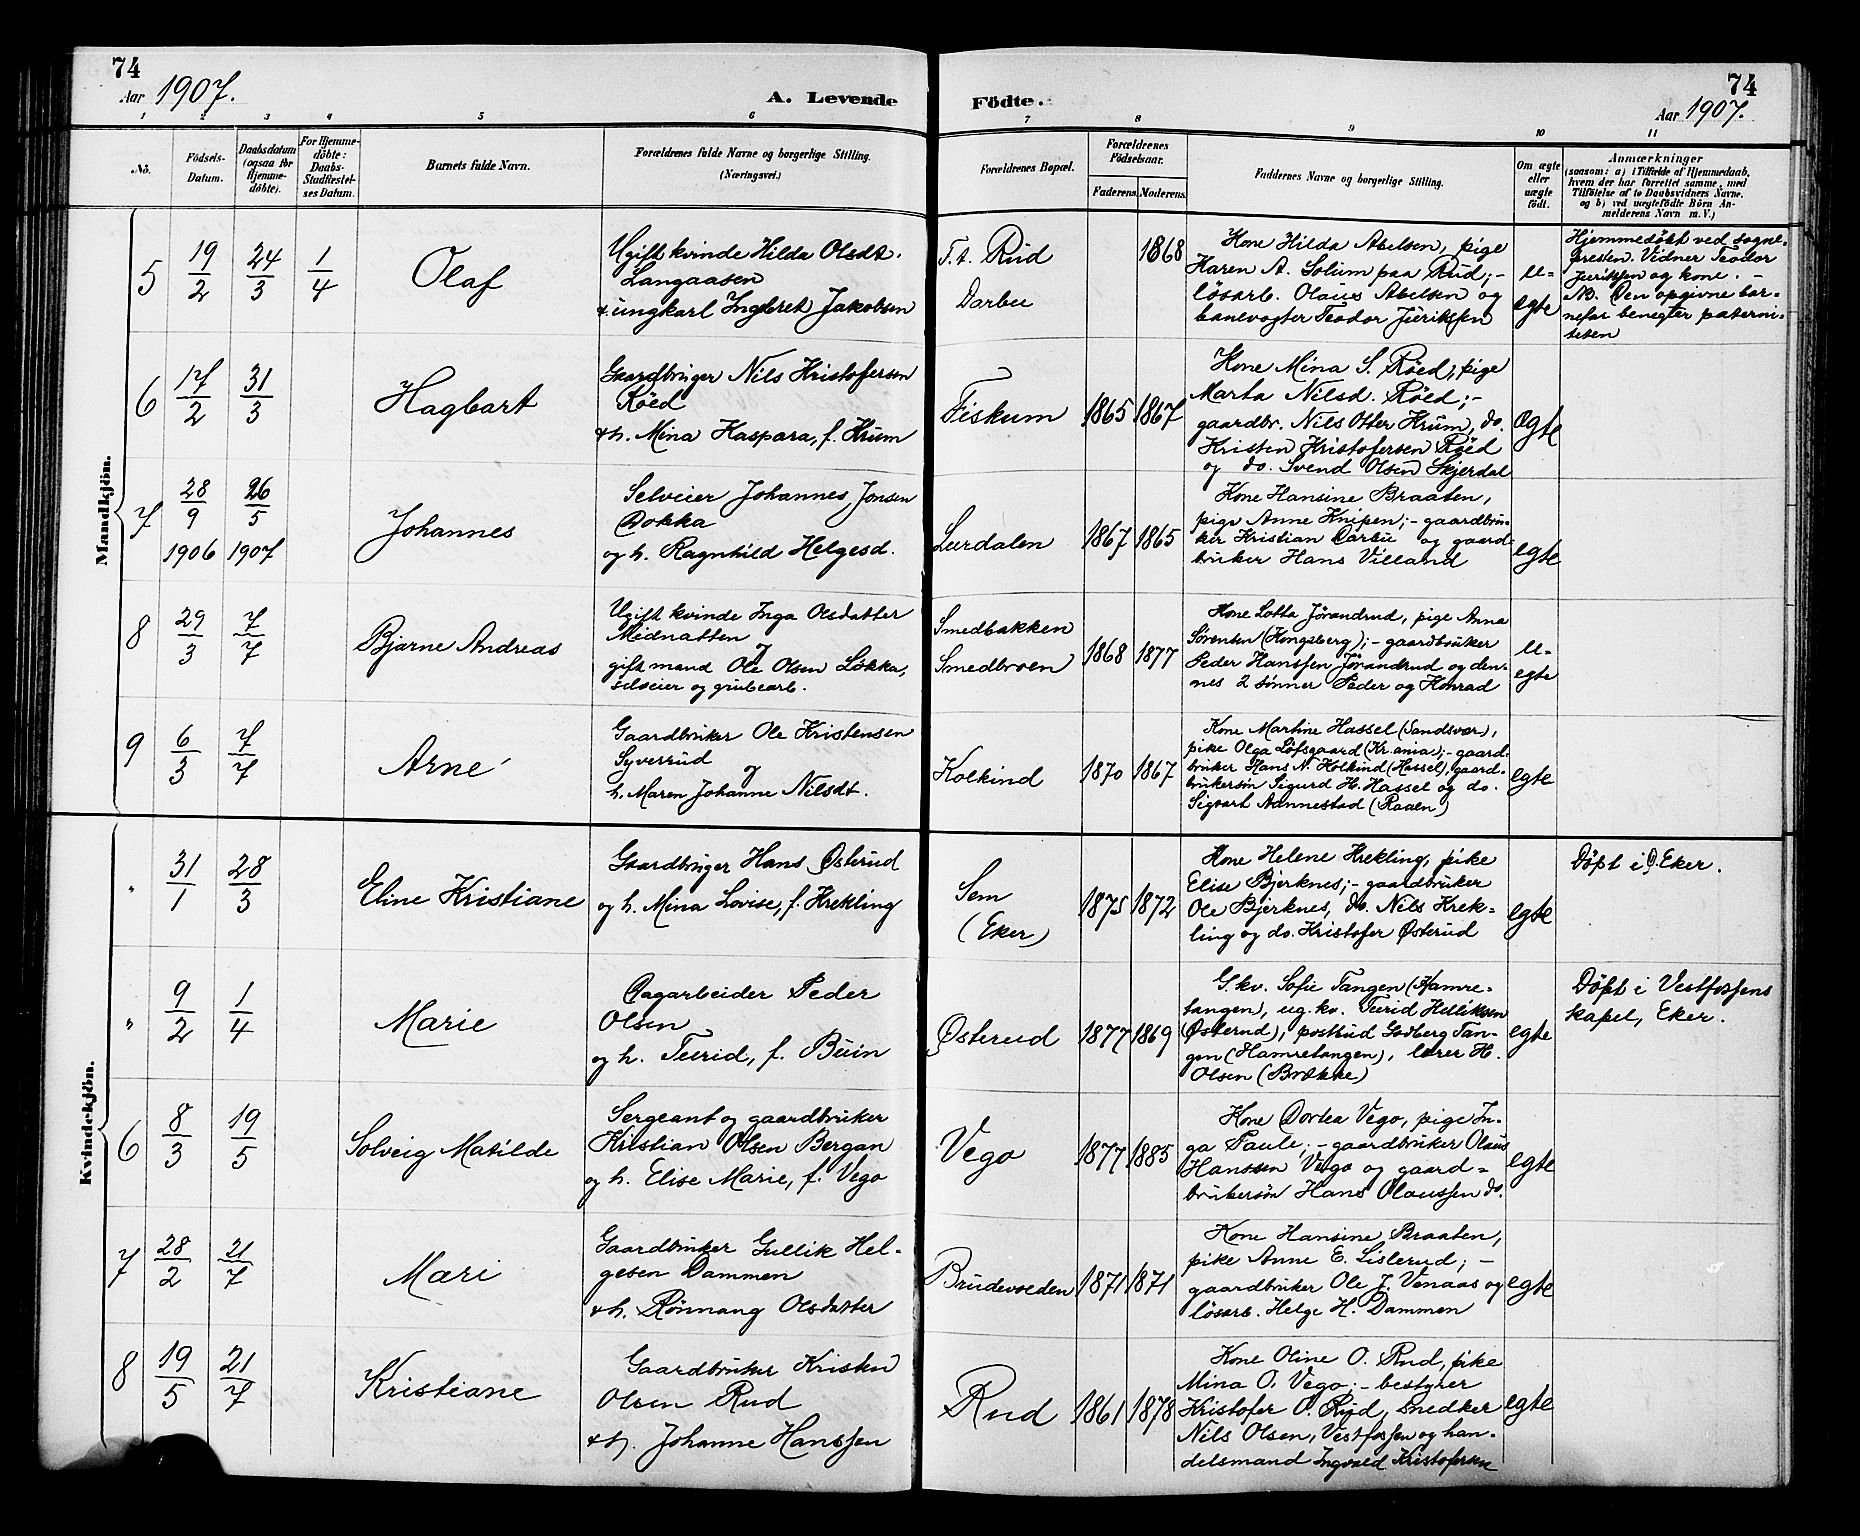 74
Aar 1907.
A. Levende
Födte.
74
Aar 1907.
1 2 3 4 5 6 7 8 9 10 11
No.
Födsels-
Datum.
Daabsdatum
(ogsaa for
Hjemme-
döbte).
For Hjemme-
döbte:
Daabs-
Stadfæstel-
ses Datum.
Barnets fulde Navn.
Forældrenes fulde Navne og borgerlige Stilling.
(Næringsvei.)
Forældrenes Bopæl.
Forældrenes
Födselsaar.
Faderens. Moderens.
Faddernes Navne og borgerlige Stilling.
Om ægte
eller
uægte
födt.
Anmærkninger
(saasom: a) i Tilfælde af Hjemmedaab,
hvem der har forrettet samme, med
Tilföielse af to Daabsvidners Navne,
og b) ved uægtefödte Börn An-
melderens Navn m. V.)
Mandkjön.
5
19/2
24/3
1/4
Olaf
Ugift kvinde Hilda Olsdt.
Langaasen
& ungkarl Ingbret Jakobsen
T.t. Rud
Darbu
1868
Kone Hilda Abelsen, pige
Karen A. Solum paa Rud;-
løsarb. Olaus Abelsen og
banevogter Teodor Juriksen
u-
egte
Hjemmedøbt ved sogne-
presten. Vidner Teodor
Juriksen og kone. -
NB. Den opgivne bar-
nefar benegter paterni-
teten
6
17/2
31/3
Hagbart
Gaardbruger Nils Kristofersen
Røed
& h. Mina Kaspara, f. Krum
Fiskum
1865 1867
Kone Mina S. Røed, pige
Marta Nilsd. Røed;-
gaardbr. Nils Otter Krum, do.
Kristen Kristofersen Røed
og do. Svend Olsen Skjerdal
egte
7
28/9
1906
26/5
1907
Johannes
Selveier Johannes Jonsen
Dokka
og h. Ragnhild Helgesd.
Lurdalen
1867 1865
Kone Hansine Braaten,
pige Anne Knipen;- gaardbru-
ker Kristian Darbu og gaard-
bruker Hans Villand
egte
8
29/3
7/7
Bjarne Andreas
Ugift kvinde Inga Olsdatter
Midnatten
og
gift mand Ole Olsen Løkka,
selveier og grubearb.
Smedbakken
Smedbroen
1868 1877
Kone Lotta Jørandrud, pige Anna
Sørensen (Kongsberg);- gaardbruker
Peder Hanssen Jørandrud og den-
nes 2 sønner Peder og Konrad
u-
egte
9
6/3
7/7
Arne
Gaardbruker Ole Kristensen
Syverrud
og
h. Maren Johanne Nilsdt.
Kolkind
1870 1867
Kone Martine Hassel (Sandsvær),
pike Olga Løfsgaard (Kr.ania);- gaard-
bruker Hans N. Kolkind (Hassel), gaard-
brukersøn Sigurd H. Hassel og do.
Sigvart Aannestad (Raaen)
egte
Kvindekjön.
"
31/1
28/3
Eline Kristiane
Gaardbruger Hans Østerud
og h. Mina Lovise, f. Krekling
Sem
(Eker)
1875 1872
Kone Helene Krekling, pike
Elise Bjerknes;- gaardbruker
Ole Bjerknes, do. Nils Krek-
ling og do. Kristofer Østerud
egte
Døpt i Ø. Eker.
"
9/2
1/4
Marie
Dagarbeider Peder
Olsen
og h. Turid, f. Buin
Østerud
1877 1869
G.kv. Sofie Tangen (Hamre-
tangen), ug. kv. Turid Helliksen
(Østerud), postbud Gudberg Tan-
gen (Hamretangen), lærer H.
Olsen (Brække)
egte
Døpt i Vestfossens
kapel, Eker.
6
8/3
19/5
Solveig Matilde
Sergeant og gaardbruker
Kristian Olsen Bergan
og h. Elise Marie, f. Vego
Vego
1877 1885
Kone Dortea Vego, pige In-
ga Paule;- gaardbruker Olaus
Hanssen Vego og gaard-
brukersøn Hans Olaussen do.
egte
7
28/2
21/7
Mari
Gaardbruker Gullik Hel-
gesen Dammen
& h. Rønnaug Olsdatter
Brudevolden
1871 1871
Kone Hansine Braaten,
pike Anne E. Lislerud; -
gaardbruker Ole J. Venaas og
løsarb. Helge H. Dammen
egte
8
19/5
21/7
Kristiane
Gaardbruker Kristen
Olsen Rud
& h. Johanne Hanssen
Rud
1861 1878
Kone Oline O. Rud, pike
Mina O. Vego;- bestyrer
Kristofer O. Rud, snedker
Nils Olsen, Vestfossen og han-
delsmand Ingvald Kristofersen
egte